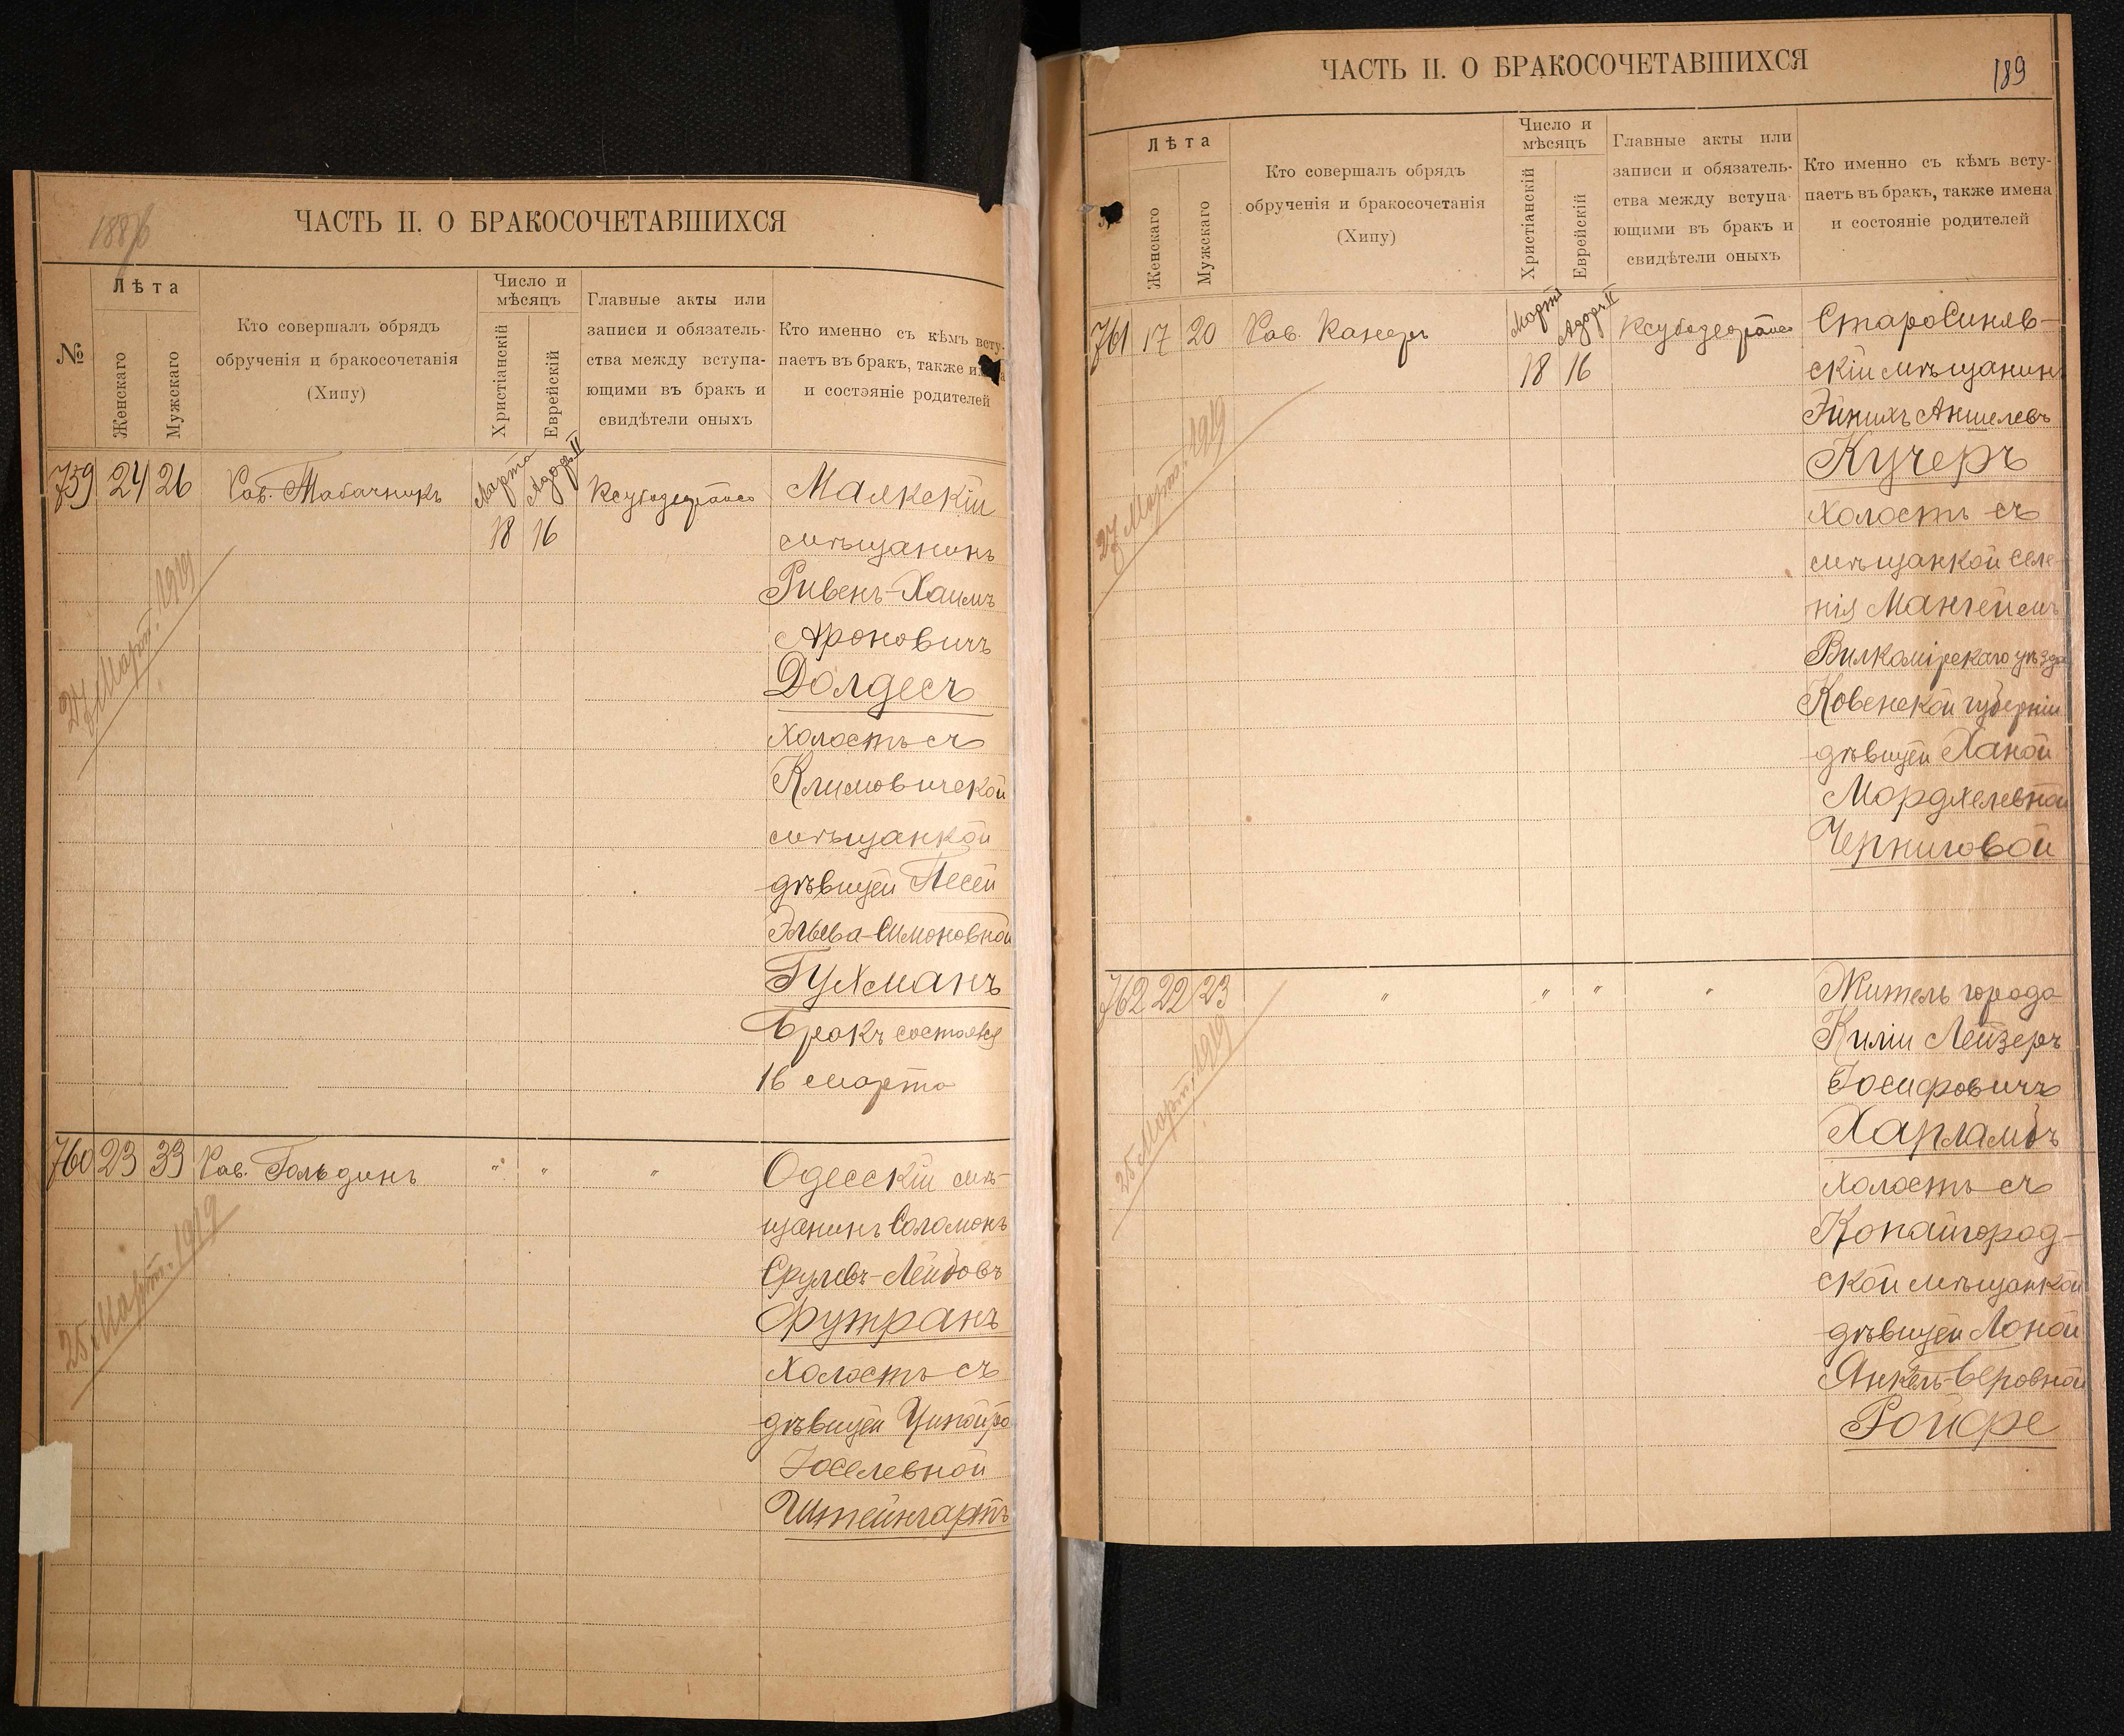 188
ЧАСТЬ II. О БРАКОСОЧЕТАВШИХСЯ
№
Лѣта
Женскаго
Мужскаго
Кто совершалъ обрядъ
обрученія и бракосочетанія
(Хипу)
Число и
мѣсяцъ
Христіанскій
Еврейскій
Главные акты или
записи и обязатель-
ства между вступа-
ющими въ бракъ и
свидѣтели оныхъ
Кто именно съ кѣмъ всту-
паетъ въ бракъ, также имена
и состэяніе родителей
759 24 26 Рав. Табачникъ
Марта Адаръ II
18 16
27 Март. 1919
Маякскій
мѣщанинъ
Ривенъ-Хаимъ
Ароновичъ
Долдесъ
холостъ съ
Климовичской
мѣщанкой
дѣвицей Песей
Эльева-Симоновной
Гухманъ
Бракъ состоялся
16 марта
760 23 33 Рав. Гольдинъ " " "
25 Март. 1919
Одесскій мѣ-
щанинъ Соломонъ
Срулевъ-Лейбовъ
Футранъ
холостъ съ
дѣвицей
Іоселевной
Штейнгартъ
ЧАСТЬ II. О БРАКОСОЧЕТАВШИХСЯ
189
№
Лѣта
Женскаго
Мужскаго
Кто совершалъ обрядъ
обрученія и бракосочетанія
(Хипу)
Число и
мѣсяцъ
Христіанскій
Еврейскій
Главные акты или
записи и обязатель-
ства между вступа-
ющими въ бракъ и
свидѣтели оныхъ
Кто именно съ кѣмъ всту-
паетъ въ бракъ, также имена
и состояніе родителей
761 17 20 Рав. Канеръ
Марта Адаръ II
18 16
27 Март. 1919
СтароСиняв-
скій мѣщанинъ
Эйнихъ Аншелевъ
Кучеръ
холостъ съ
мѣщанкой селе-
нія Мангеймъ
Вилкомірскаго уѣзда
Ковенской губерніи
дѣвицей Ханой
Мордхелевной
Черниговой
762 22 23 " " " "
25 Март. 1919
Житель города
Киліи Лейзеръ
Іосифовичъ
Харламбъ
холостъ съ
Копайгород-
ской мѣщанкой
дѣвицей
Янкель-Беровной
Ройфе